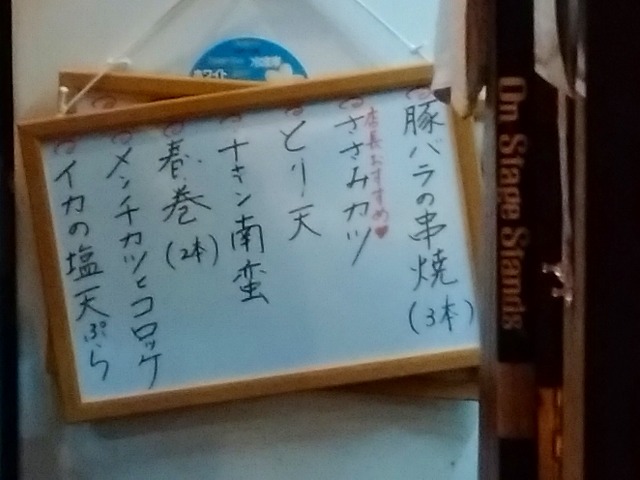 豚バラの串焼(3本)
店長おすすめ♥
ささみカツ
とり天
チキン南蛮
春巻(2本)
メンチカツとコロッケ
イカの塩天ぷら
ホワイト
On Stage Stands